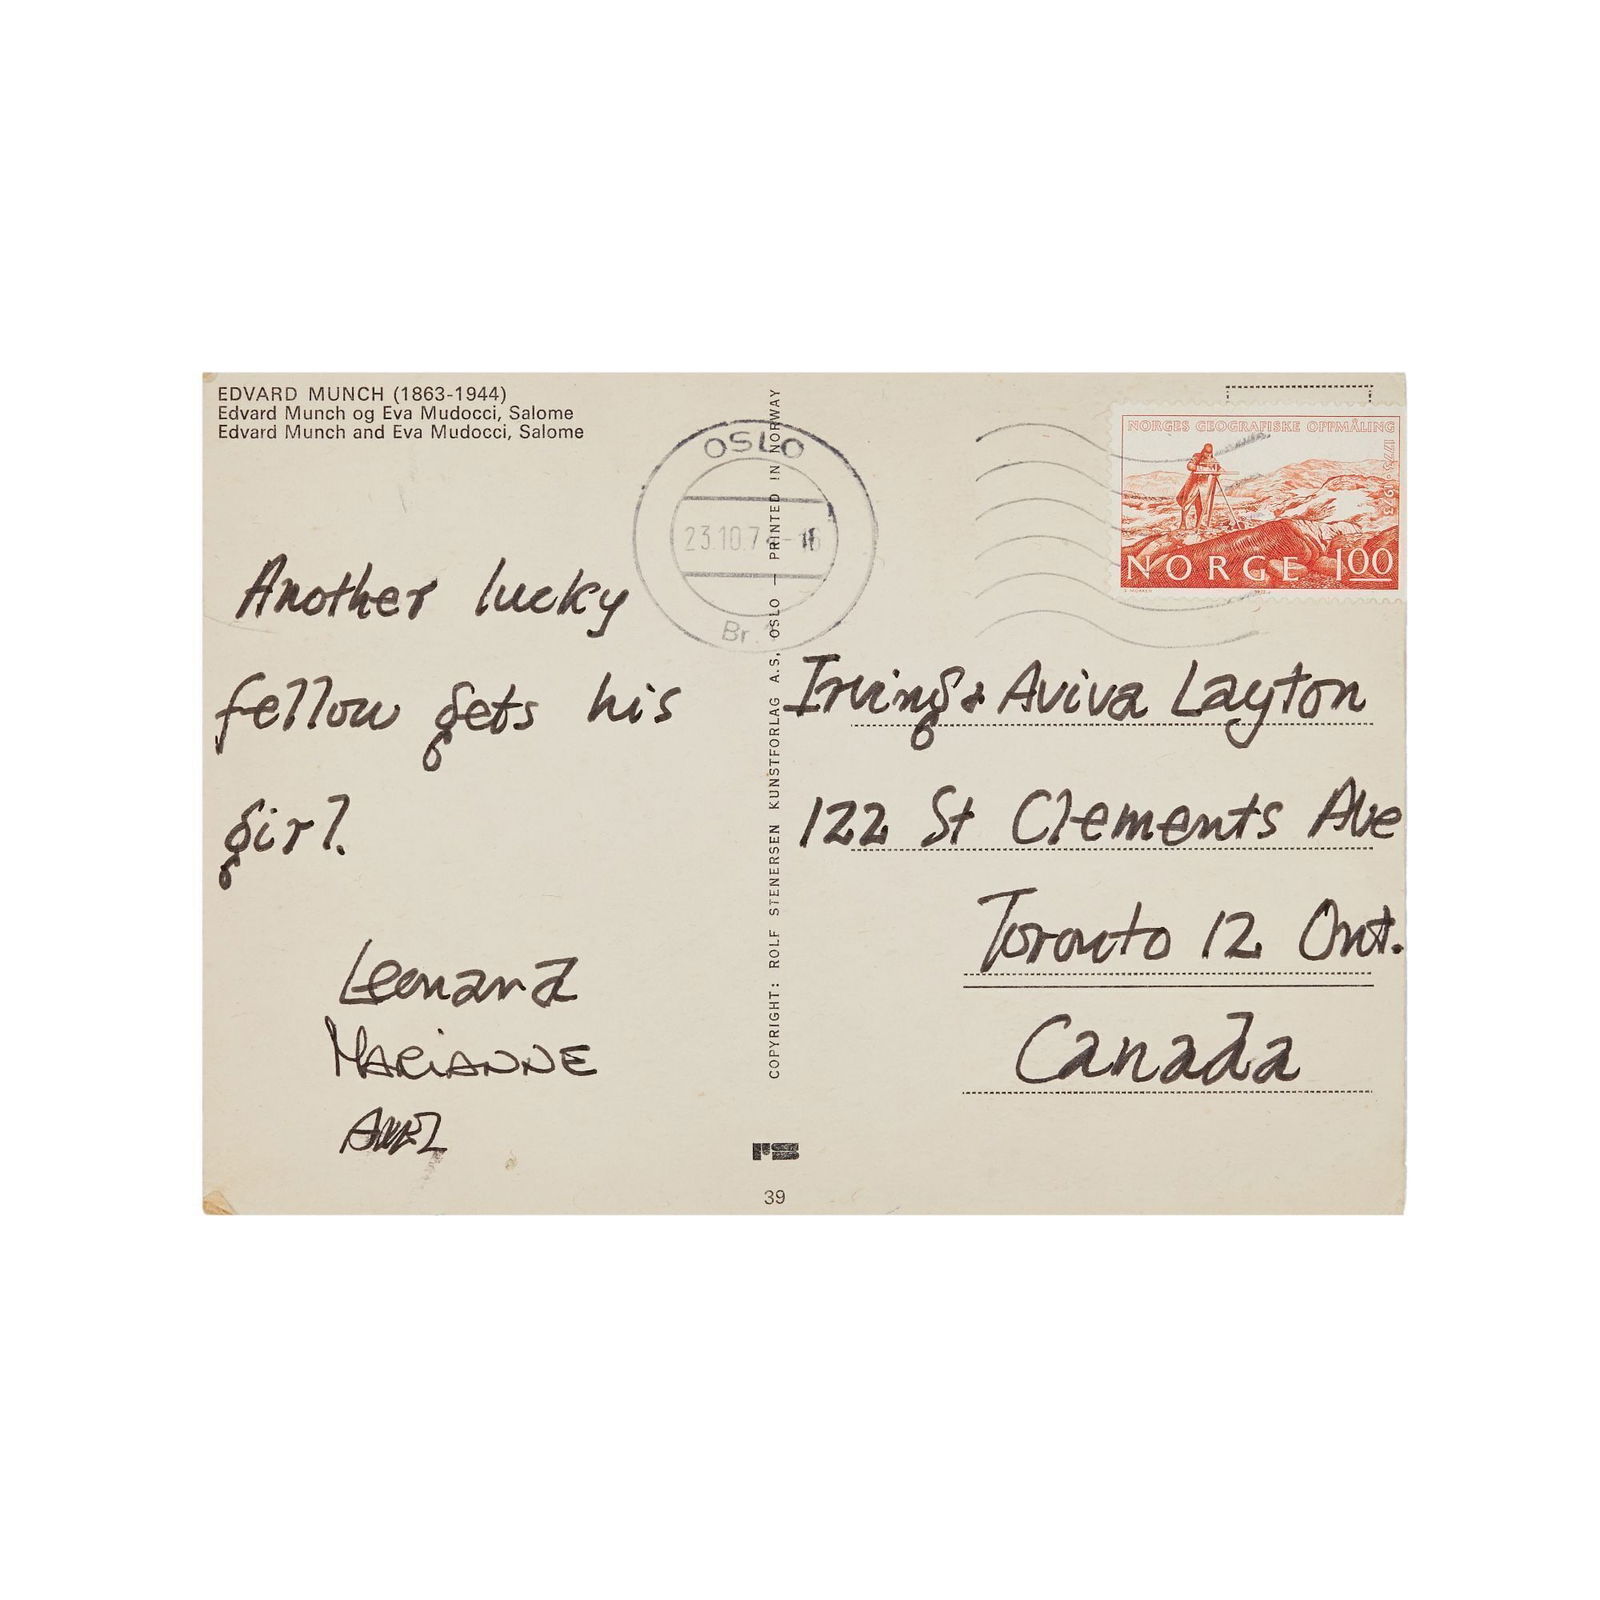 EDVARD MUNCH (1863-1944)
Edvard Munch og Eva Mudocci, Salome
Edvard Munch and Eva Mudocci, Salome
OSLO
23.10.7
Br.
NORGES GEOGRAFISKE OPPMÅLING 1773 1973
NORGE 1.00
Another lucky
fellow gets his
girl.
Leonard
MARiANNE
AXEL
COPYRIGHT: ROLF STENERSEN KUNSTFORLAG A.S, OSLO — PRINTED IN NORWAY
Irving & Aviva Layton
122 St Clements Ave
Toronto 12 Ont.
Canada
rs
39